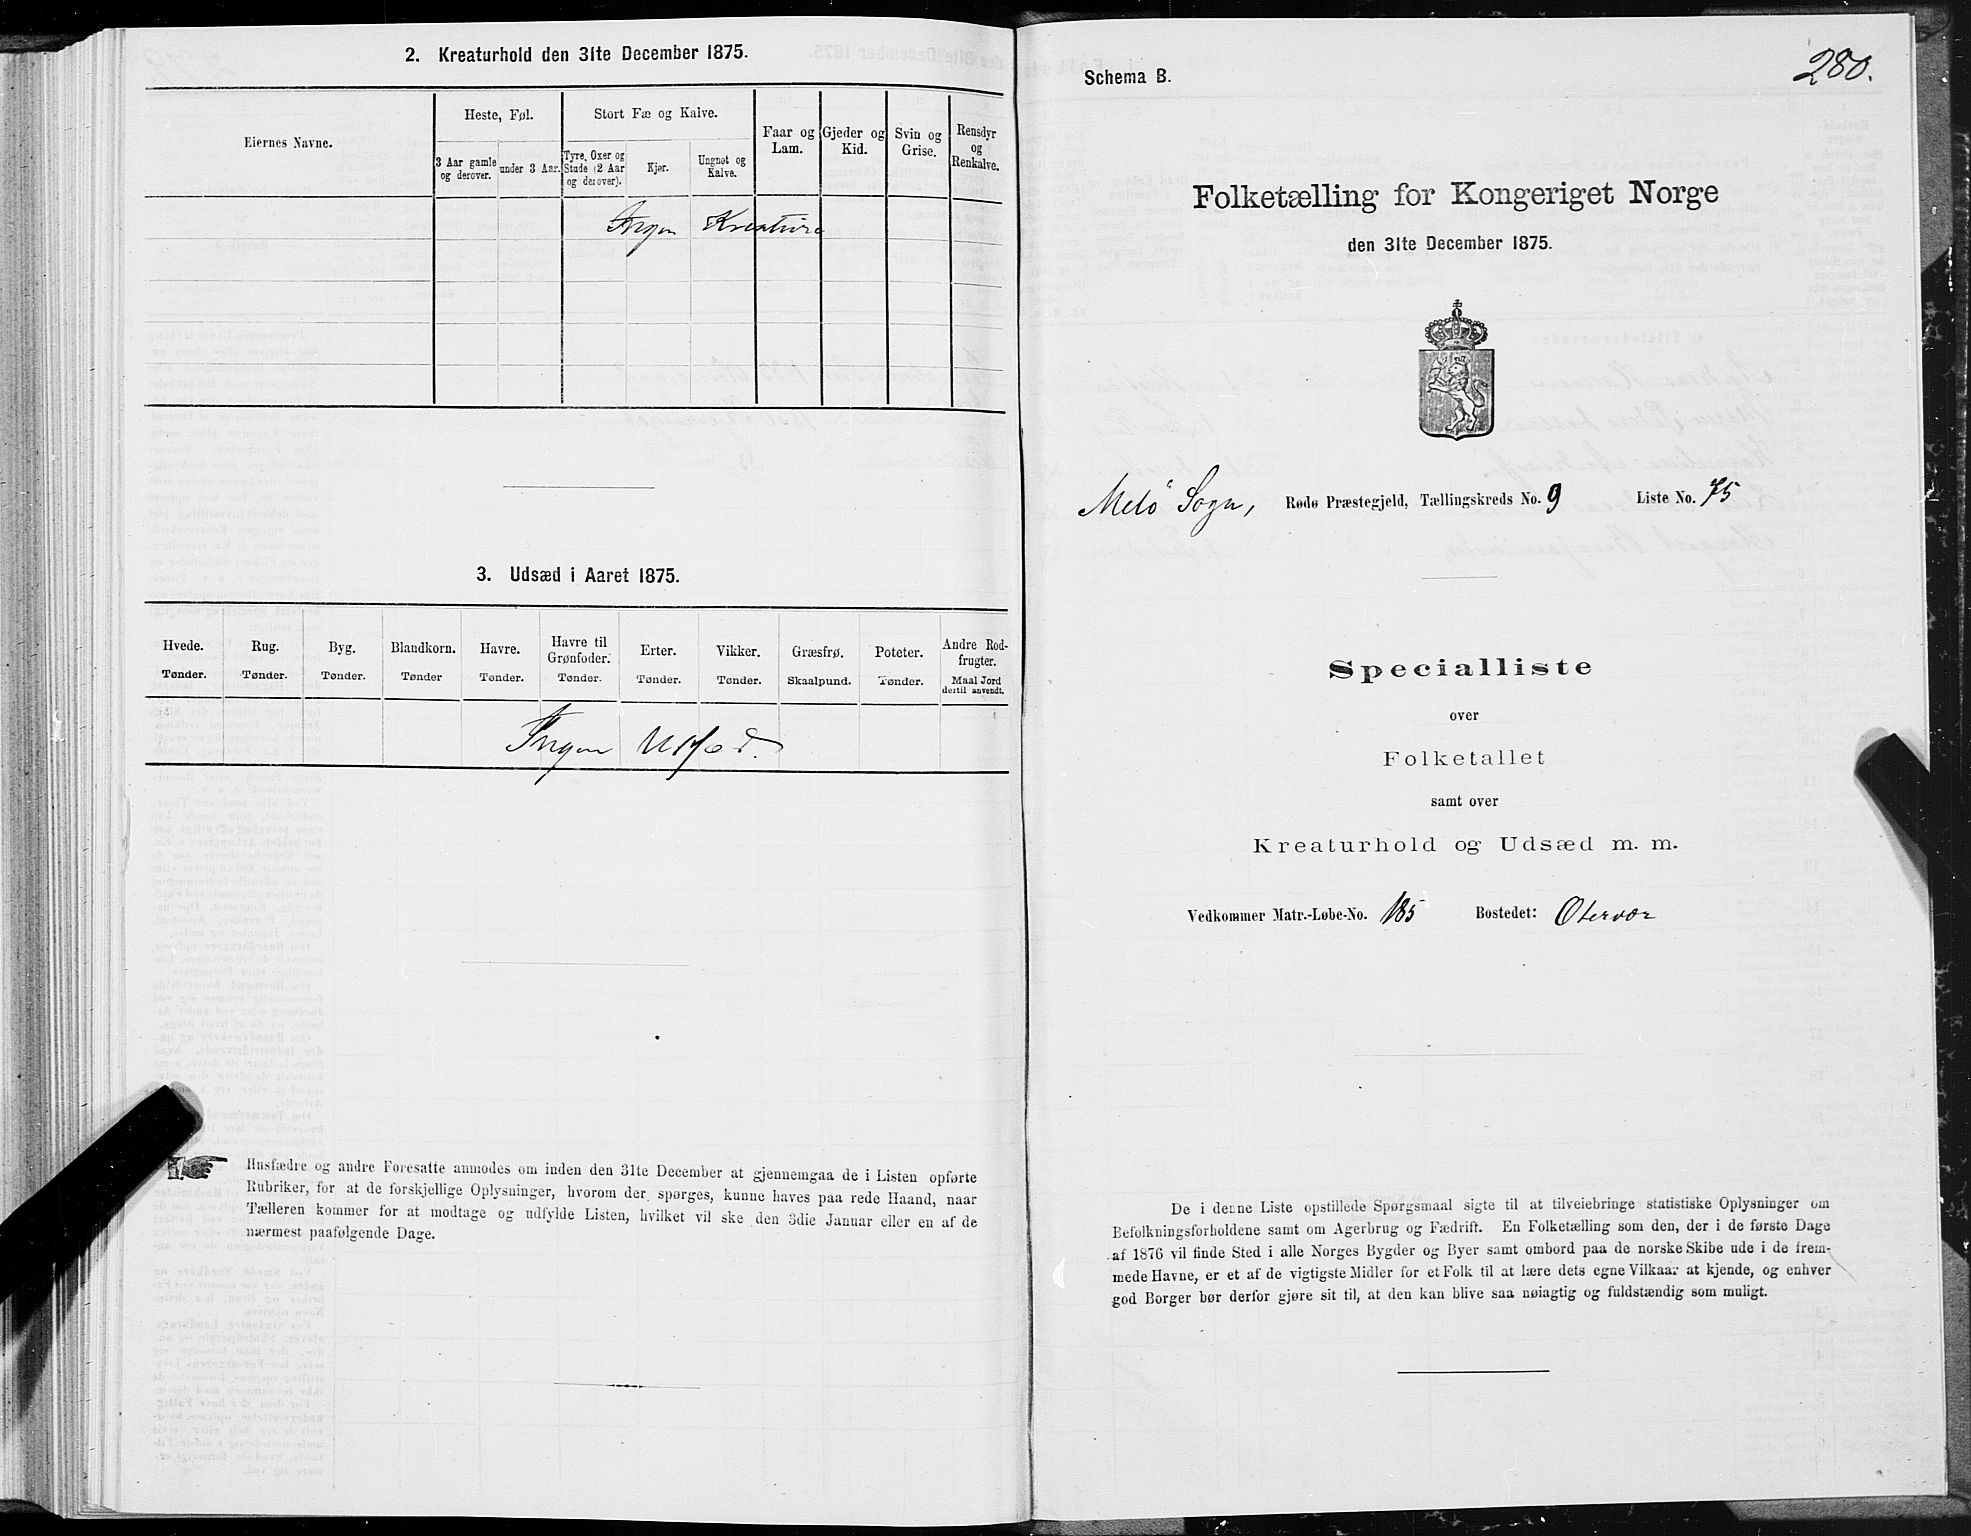 2. Kreaturhold den 31te December 1875.
Eiernes Navne.
Heste, Føl.
Stort Fæ og Kalve.
Faar og Lam.
Gjeder og Kid.
Svin og Grise.
Rensdyr og Renkalve.
3 Aar gamle og derover.
under 3 Aar.
Tyre, Oxer og Stude (2 Aar og derover).
Kjør.
Ungnøt og Kalve.
Ingen Kreature
3. Udsæd i Aaret 1875.
Hvede. Rug. Byg. Blandkorn. Havre. Havre til Grønfoder. Erter. Vikker. Græsfrø. Poteter. Andre Rodfrugter.
Tønder. Tønder. Tønder. Tønder Tønder. Tønder. Tønder. Tønder. Skaalpund. Tønder. Maal Jord dertil anvendt.
Ingen
Husfædre og andre Foresatte anmodes om inden den 31te December at gjennemgaa de i Listen opførte
Rubriker, for at de forskjellige Oplysninger, hvorom der spørges, kunne haves paa rede Haand, naar
Tælleren kommer for at modtage og udfylde Listen, hvilket vil ske den 3die Januar eller en af de
nærmest paafølgende Dage.
280.
Schema B.
Folketælling for Kongeriget Norge
den 31te December 1875.
Melö Sogn, Rødø Præstegjeld, Tællingskreds No. 9 Liste No. 75
Specialliste
over
Folketallet
samt over
Kreaturhold og Udsæd m. m.
Vedkommer Matr.-Løbe-No. 185 Bostedet: Otervær
De i denne Liste opstillede Spørgsmaal sigte til at tilveiebringe statistiske Oplysninger om
Befolkningsforholdene samt om Agerbrug og Fædrift. En Folketælling som den, der i de første Dage
af 1876 vil finde Sted i alle Norges Bygder og Byer samt ombord paa de norske Skibe ude i de frem-
mede Havne, er et af de vigtigste Midler for et Folk til at lære dets egne Vilkaar at kjende, og enhver
god Borger bør derfor gjøre sit til, at den kan blive saa nøiagtig og fuldstændig som muligt.